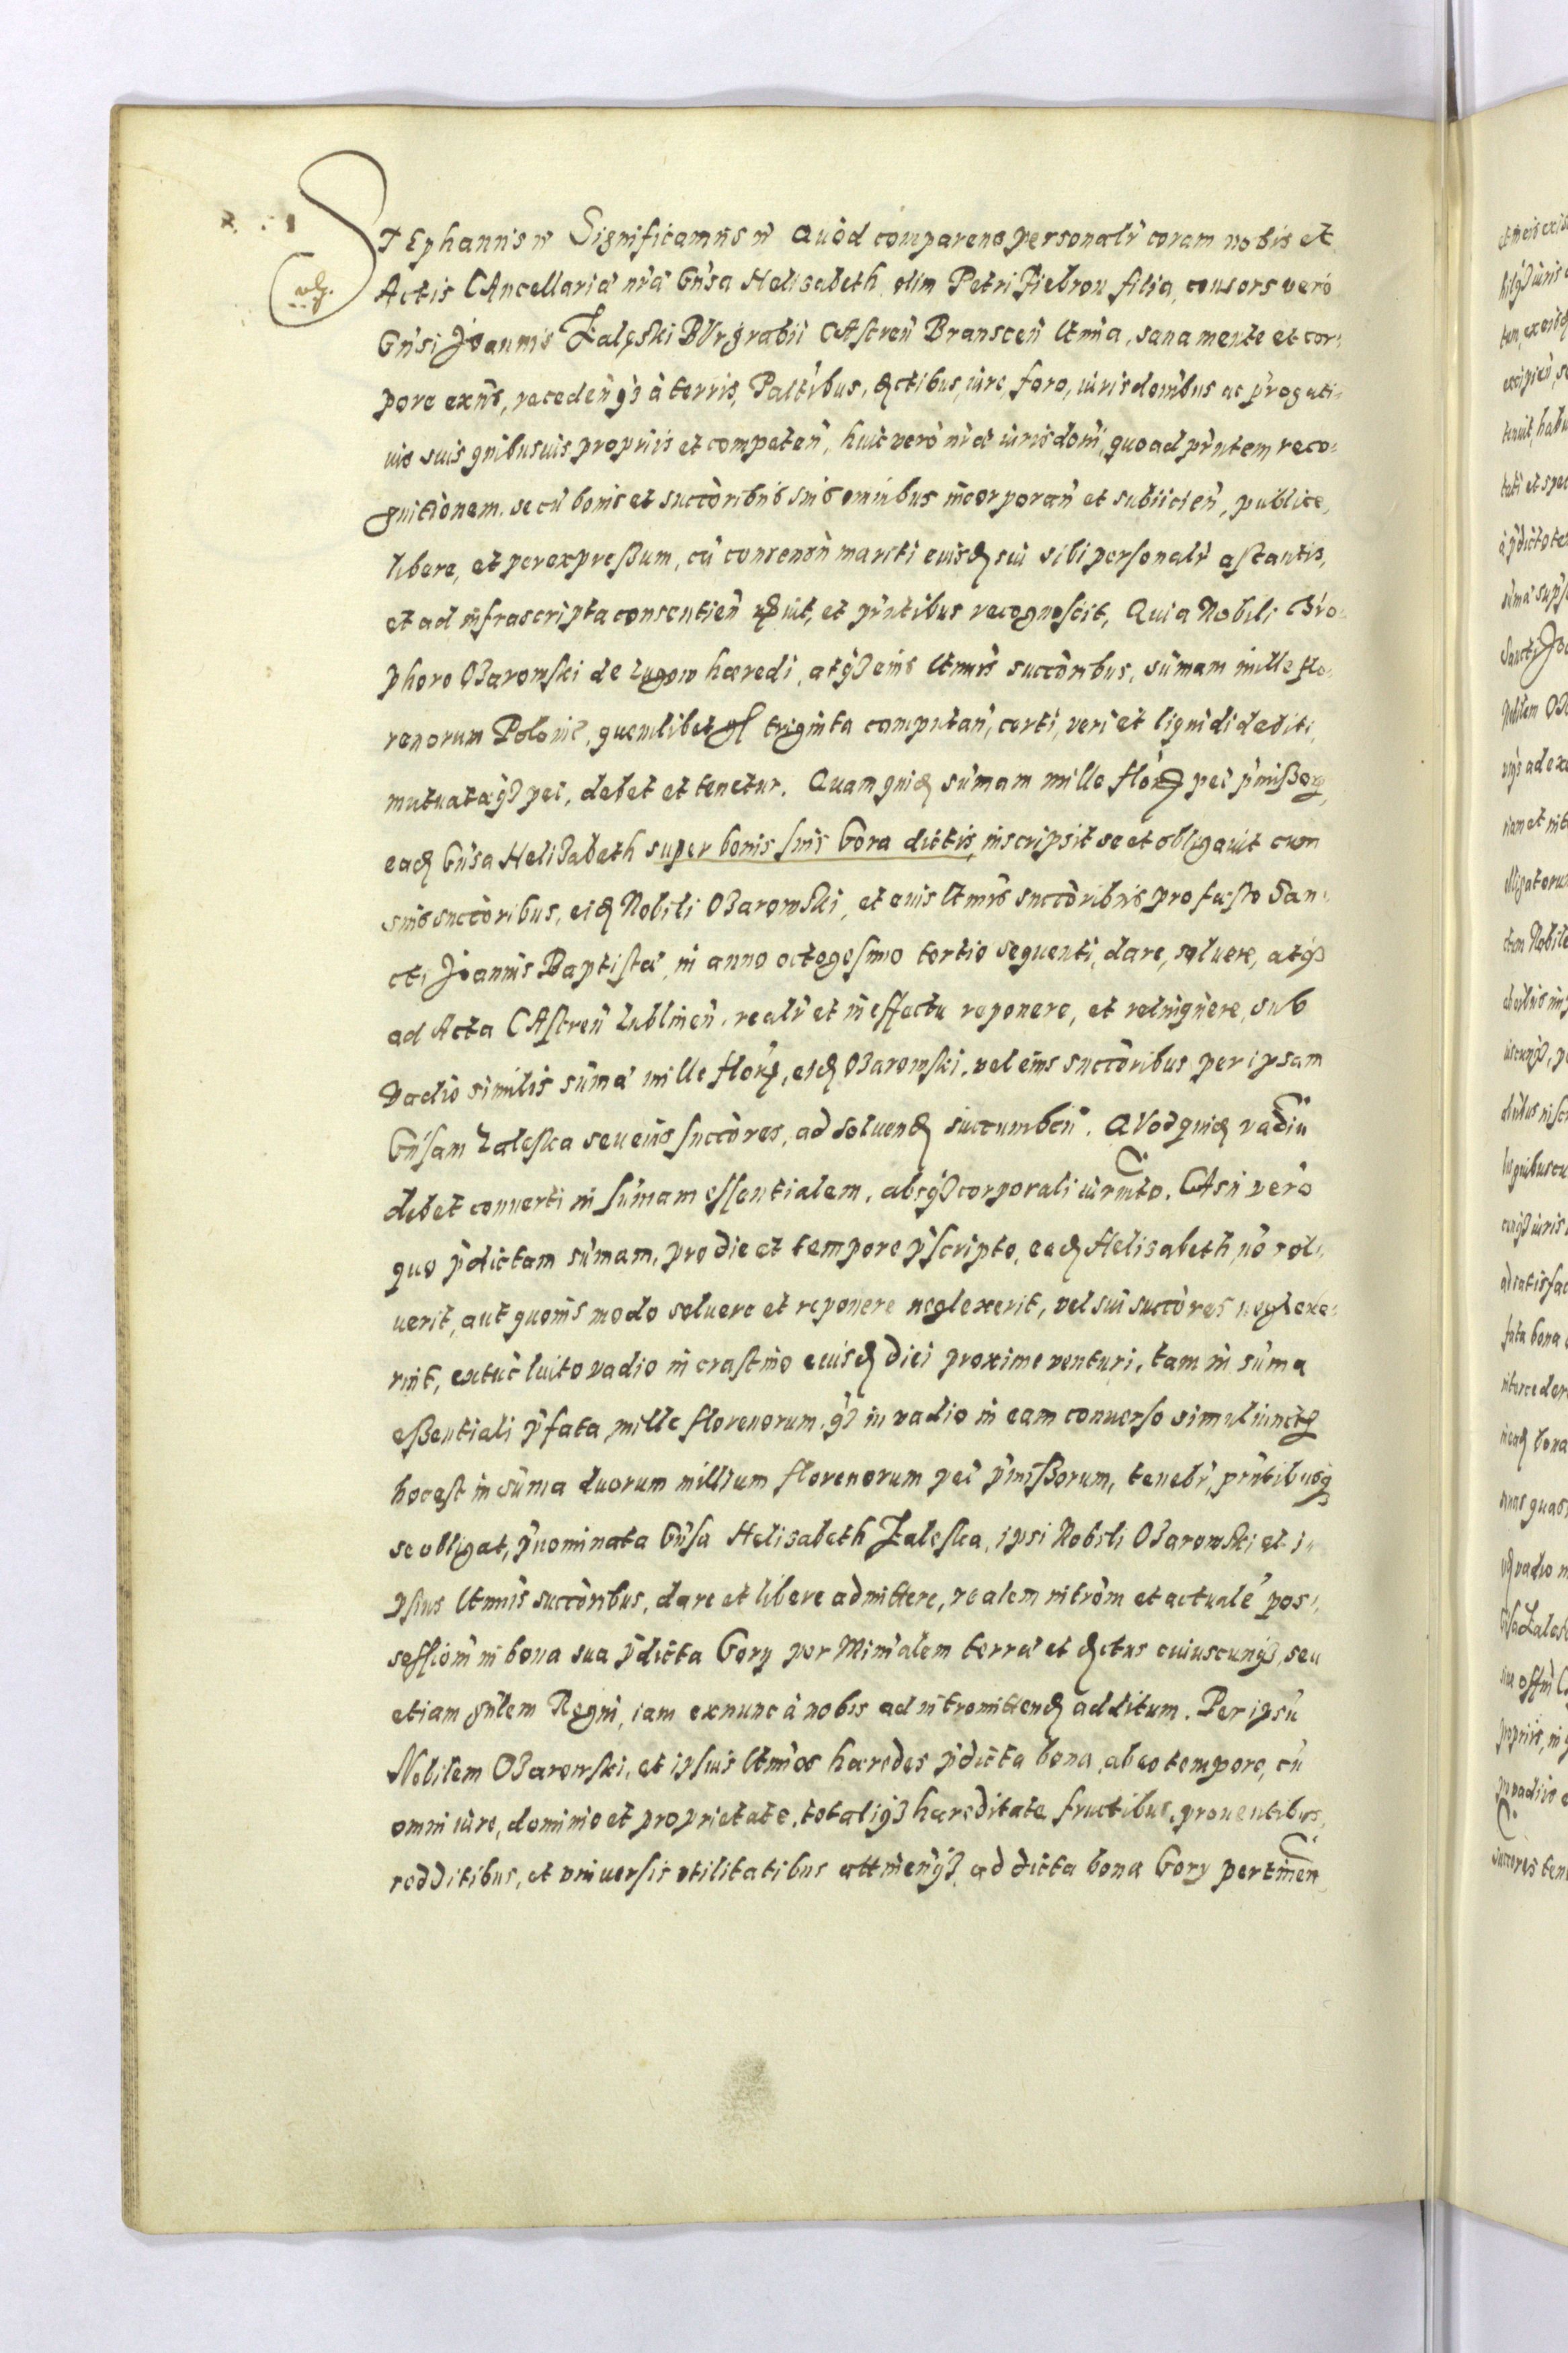 STEphanus etc Significamus etc Quòd comparens personalr̃ coram nobis et
Actis CAncellariæ nr̃æ Gñsa Helizabeth olim Petri Piebron filia, consors verò
Gñsi Joannis Zalęski BUrgrabii CAstreñRansceñ lt̃ima, sana mente et cor¬
pore exñs, recedeñq3 à terris, Paltibus, Dictibus, iure, foro, iurisdoñibus ac p̃rogati¬
uis suis quibusuis propriis et competeñ, huic verò nr̃æ iurisdoñi, quoad p̃ntem reco¬
gnitionem. se cũ bonis et succõribus suis omnibus incorporañ et subiicieñ, publice,
libere, et per expreßum, cũ consensũ mariti eiusd sui sibi personalr̃ astantis,
et ad infrascripta consentieñ iuit, et p̃ntibus recognoscit, Quia Nobili Chro¬
phoro OZarowski de Lugow hæredi, atq3 eius lt̃imis succõribus, sum̃am mille flo¬
renorum Poloniæ, quemlibet triginta computañ, certi, veri et liquidi debiti,
mutuatæq3 pec̃, debet et tenetur. Quam quid sum̃am mille flor̃ pec̃ p̃mißor̃,
ead Gñsa HeliZabeth super bonis suis Góra dictis, inscripsit se et obligauit cum
suis succõribus, eid Nobili OZarowski, et eius lt̃imis succõribus pro festo San¬
cti Joannis Baptistæ, in anno octogesimo tertio sequenti, dare, soluere, atq3
ad Acta CAstreñ Lublineñ, realr̃ et in effectu reponere, et relinquere, sub
vadio similis sum̃æ mille flor̃, eid OZarowski, vel eius succõribus per ipsam
Gñsam Zaleska seu eius succõres, ad soluend succumbeñ. QVod quid vadiũ
debet conuerti in sum̃am essentialem, absq3 corporali iurm̃to. CAsu verò
quo p̃dictam sum̃am, pro die et tempore p̃scripto, ead Helizabeth nõ sol¬
uerit, aut quouis modo soluere et reponere neglexerit, vel sui succõres neglexe¬
rint, extũc luito vadio in crastino eiusd diei proxime venturi, tam in sum̃a
eßentiali p̃fata mille florenorum, q3 in vadio in eam conuerso simul iunctis
hoc est in sum̃a duorum millium florenorum pec̃ p̃mißorum, tenebr̃, p̃ntibusq3
se obligat, p̃nominata Gñsa Helizabeth Zaleska, ipsi Nobili OZarowski et i¬
psius lt̃imis succõribus, dare et libere admittere, realem intrõm et actualẽ pos¬
sessiom̃ in bona sua p̃dicta Gory per Minr̃alem terræ et Dictus cuiuscunq3, seu
etiam gñlem Regni, iam exnunc à nobis ad intromittend additum. Per ipsũ
Nobilem OZarowski, et ipsius lt̃imos hæredes p̃dicta bona, ab eo tempore, cũ
omni iure, dominio et proprietate, totaliq3 hæreditate fructibus, prouentibus,
redditibus, et vniuersis vtilitatibus attineñq3, ad dicta bona Gory pertineñ